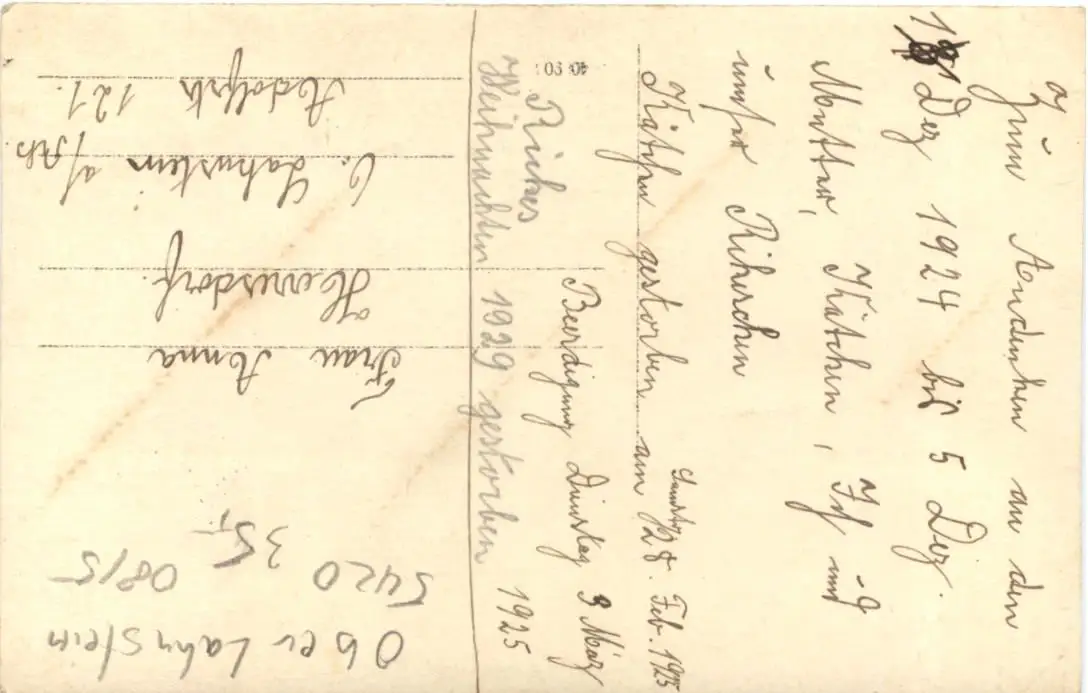 Zum Andenken an den
1 Dez 1924 bis 5 Dez.
Mutter, Kätchen, Ich und
unser Rikerchen
Kätchen gestorben am Samstag 28. Feb. 1925
Beerdigung Dinstag 3 März
1925
Rickes
Weihnachten 1929 gestorben
Frau Anna
Hewersdorf.
O. Lahnstein a/Rh.
Adolfstr 121.
Ober Lahnstein
5420 08/5
35,-